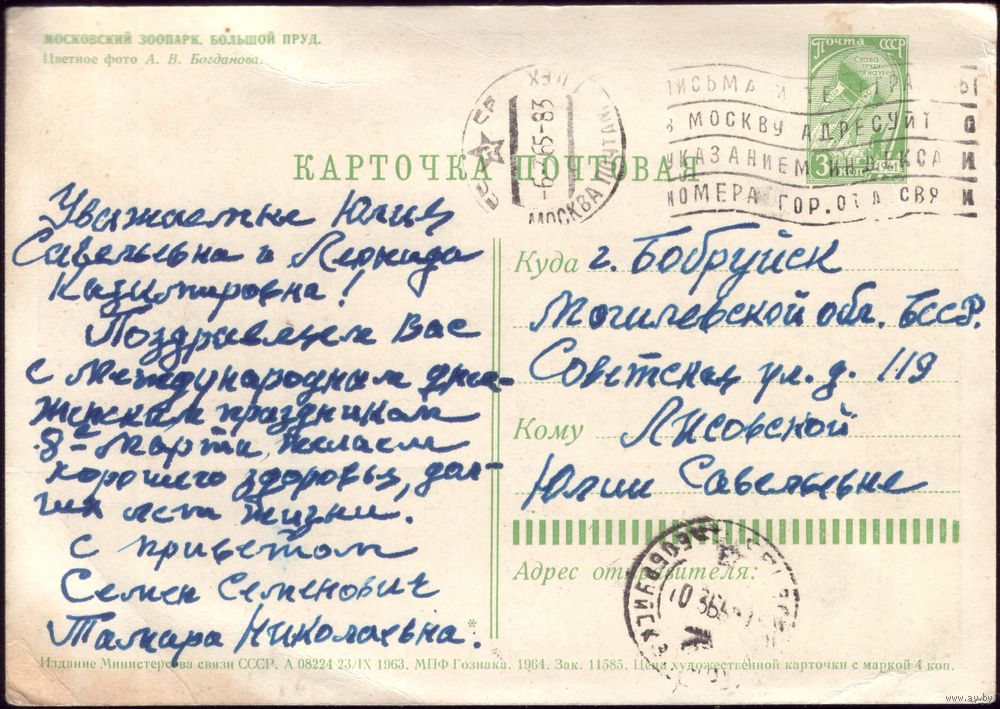 МОСКОВСКИЙ ЗООПАРК. БОЛЬШОЙ ПРУД.
Цветное фото А. В. Богданова.
Почта СССР
СЛАВА
ТРУДУ
И НАУКЕ
3 КОП.
1961
МОСКВА ПОЧТАМТ
-6-765-83
ПИСЬМА И
В МОСКВУ АДРЕСУЙТ
УКАЗАНИЕМ ИНДЕКСА
НОМЕРА ГОР. ОТД СВЯ
КАРТОЧКА ПОЧТОВАЯ
Уважаемые Юлия
Савельевна и Леонида
Казимировна!
Поздравляем Вас
с Международным днем-
женским праздником
8е Марта, желаем
хорошего здоровья, дол-
гих лета жизни.
с приветом
Семен Семенович
Тамара Николаевна.
*
Куда г. Бобруйск
Могилевской обл. БССР.
Советская ул. д. 119
Кому Лисовской
Юлии Савельевне
Адрес отправителя:
Издание Министерсва связи СССР. А 08224 23/IX 1963. МПФ Гознака. 1964. Зак. 11585. Цена художественной карточки с маркой 4 коп.
www.ay.by